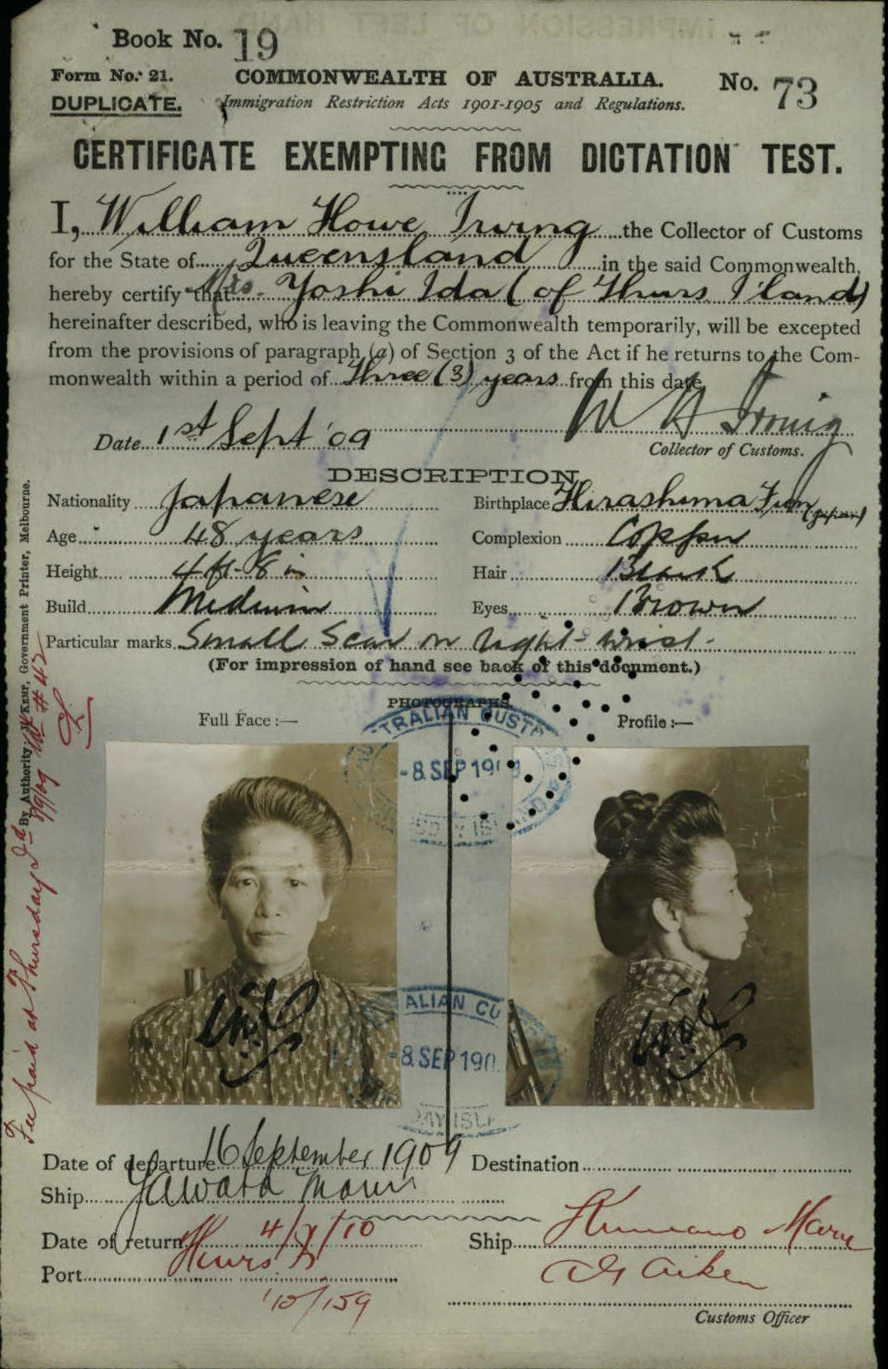 Book No. 19
Form No. 21. COMMONWEALTH OF AUSTRALIA. No. 73
DUPLICATE. Immigration Restriction Acts 1901-1905 and Regulations.
CERTIFICATE EXEMPTING FROM DICTATION TEST.
I, William Howe Irving the Collector of Customs
for the State of Queensland in the said Commonwealth,
hereby certify that Mrs. Yoshi Ida (of Thurs I'land)
hereinafter described, who is leaving the Commonwealth temporarily, will be excepted
from the provisions of paragraph (a) of Section 3 of the Act if he returns to the Com-
monwealth within a period of Three (3) years from this date.
W H Irving
Date 1st Sept '09 Collector of Customs.
DESCRIPTION
Nationality Japanese Birthplace Hirashima (Japan)
Age 48 years Complexion Copper
Height 4 ft 8 in Hair Black
Build Medium Eyes Brown
Particular marks Small Scar on right wrist.
(For impression of hand see back of this document.)
PHOTOGRAPHS.
Full Face :— Profile :—
-8 SEP 190
ALIAN CU
-8 SEP 190
Date of departure 16 September 1909 Destination
Ship Yawata Maru
Date of return 4/7/10 Ship Kumano Maru
Port Thurs Is
10/159
Customs Officer
By Authority: J. Kemp, Government Printer, Melbourne.
Fee paid at Thursday Id